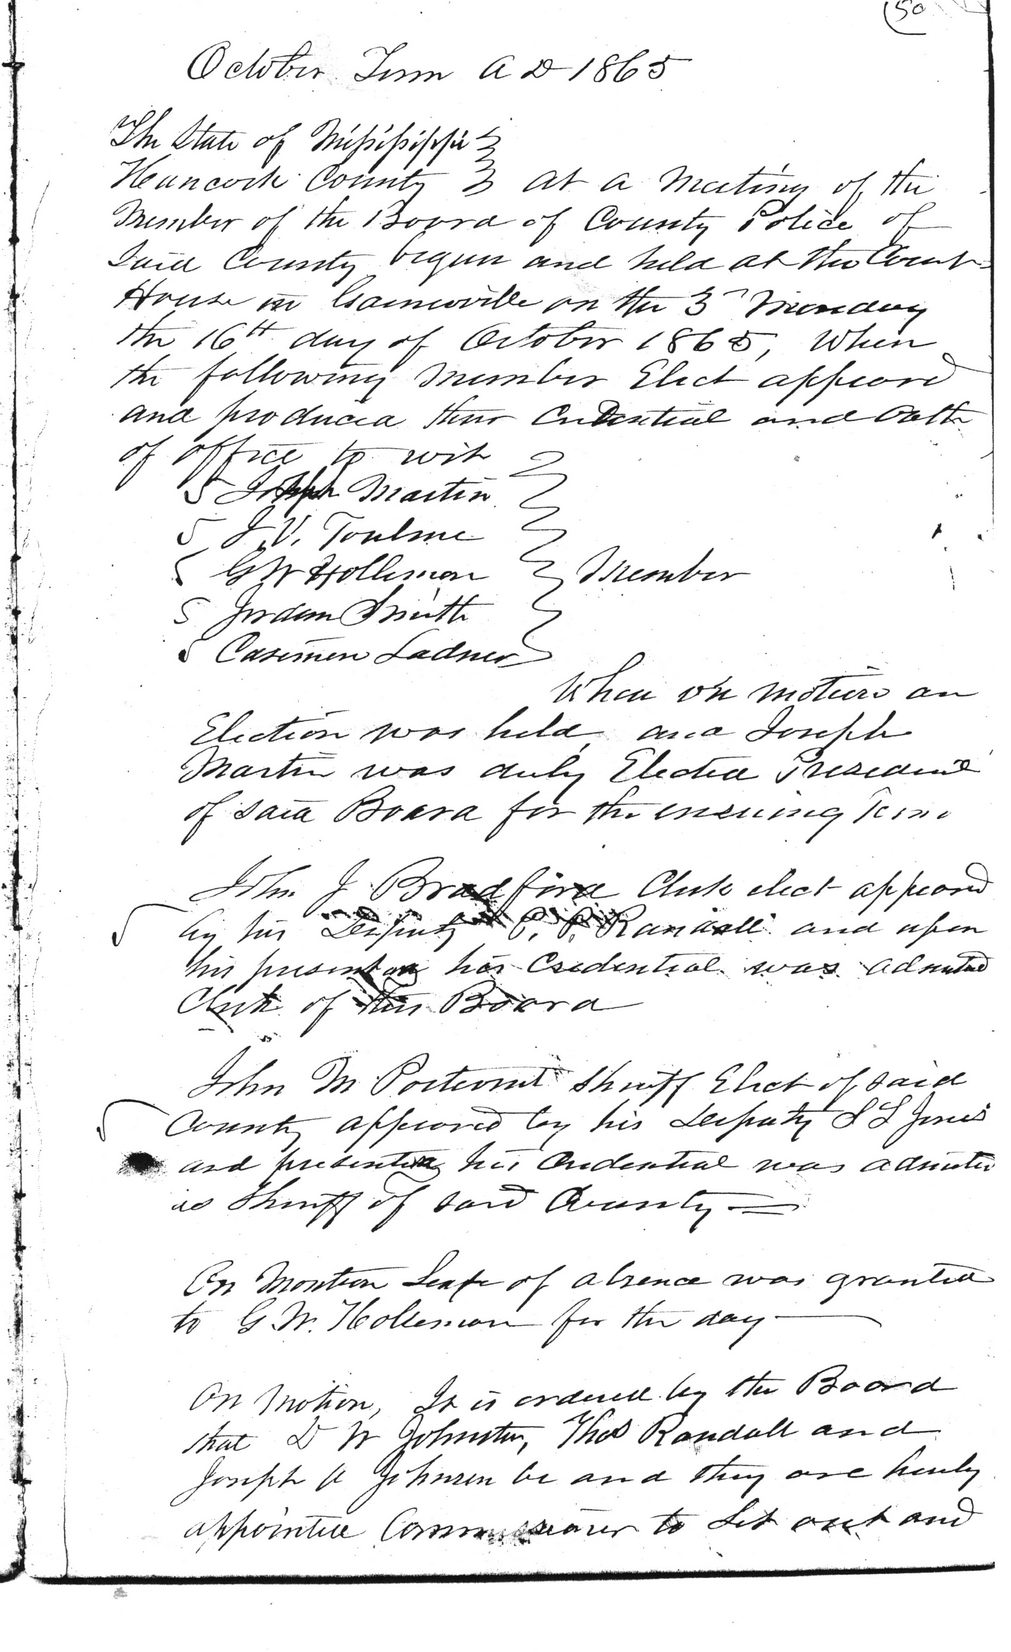 50
October Term A D 1865
The State of Mississippi
Hancock County At a Meeting of the
Member of the Board of County Police of
Said County begun and held at the Court
House in Gainesville on the 3d Monday
the 16th day of October 1865, When
the following Member Elect appeard
and produced their Credential and Oath
of office to wit
5 Joseph Martin
5 J. V. Toulme
5 G W Holleman
5 Jordan Smith
5 Casimen Ladner
Member
When on motion an
Election was held, and Joseph
Martin was duly Elected President
of said Board for the ensuing Term
John J Bradford Clerk elect appeard
by his Deputy C. P. Randall and upon
his presenting his Credential was admitted
Clerk of this Board
John M Poitevent Sheriff Elect of said
County appeared by his Deputy S L Jones
and presenting his Credential was admitted
as Sheriff of said County
On Montion Leafe of absence was granted
to G. W. Holleman for the day
On Motion, It is ordered by the Board
that D W Johnston, Thos Randall and
Joseph Johnson be and they are hereby
appointed Commissioner to Let out and